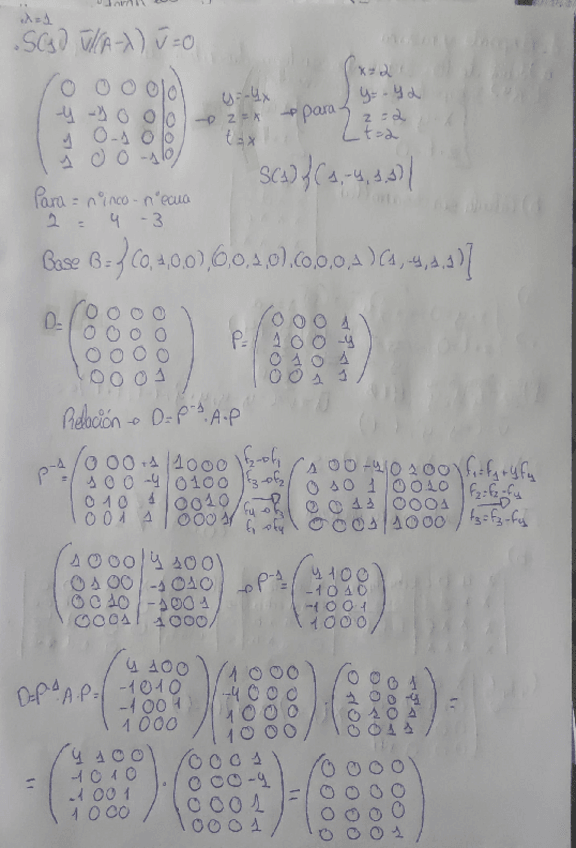 λ=1
S(1) V̄/(A-λ) V̄=0
( 0 0 0 0 | 0
-4 -1 0 0 | 0
1 0 -1 0 | 0
1 0 0 -1 | 0 ) → y=-4x z=x t=x → para { x=2 y=-42 z=2 t=2
S(1) {(1,-4,1,1)|
Para = nºinco - nºecua
2 = 4 - 3
Base B= {(0,1,0,0),(0,0,1,0),(0,0,0,1)(1,-4,1,1)]
D= ( 0 0 0 0
0 0 0 0
0 0 0 0
0 0 0 1 ) P= ( 0 0 0 1
1 0 0 -4
0 1 0 1
0 0 1 1 )
Relación → D=P⁻¹·A·P
P⁻¹= ( 0 0 0 +1 | 1 0 0 0
1 0 0 -4 | 0 1 0 0
0 1 0 1 | 0 0 1 0
0 0 1 1 | 0 0 0 1 ) f2→f1 f3→f2 f4→f3 f1→f4 ( 1 0 0 -4 | 0 1 0 0
0 1 0 1 | 0 0 1 0
0 0 1 1 | 0 0 0 1
0 0 0 1 | 1 0 0 0 ) f1=f1+4f4 f2=f2-f4 f3=f3-f4
( 1 0 0 0 | 4 1 0 0
0 1 0 0 | -1 0 1 0
0 0 1 0 | -1 0 0 1
0 0 0 1 | 1 0 0 0 ) → P⁻¹= ( 4 1 0 0
-1 0 1 0
-1 0 0 1
1 0 0 0 )
D=P⁻¹·A·P= ( 4 1 0 0
-1 0 1 0
-1 0 0 1
1 0 0 0 ) ( 1 0 0 0
-4 0 0 0
1 0 0 0
1 0 0 0 ) · ( 0 0 0 1
1 0 0 -4
0 1 0 1
0 0 1 1 ) =
= ( 4 1 0 0
-1 0 1 0
-1 0 0 1
1 0 0 0 ) · ( 0 0 0 1
0 0 0 -4
0 0 0 1
0 0 0 1 ) = ( 0 0 0 0
0 0 0 0
0 0 0 0
0 0 0 1 )